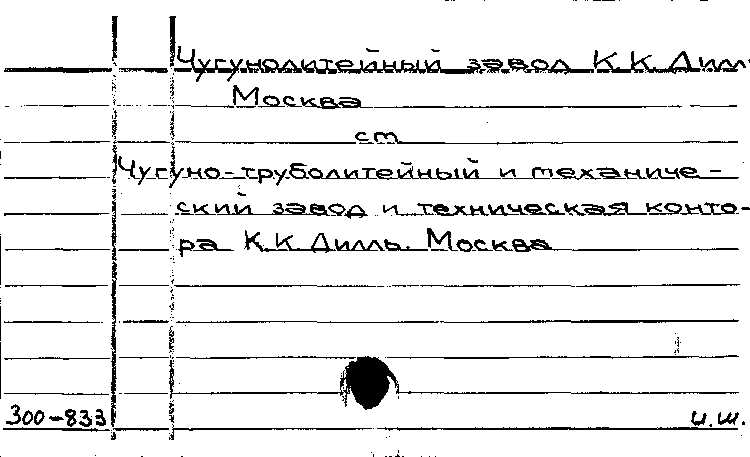 Чугунолитейный завод К.К. Дилль
Москва
см
Чугуно-труболитейный и механиче-
ский завод и техническая конто-
ра К.К. Дилль. Москва
300-833
И.Ш.